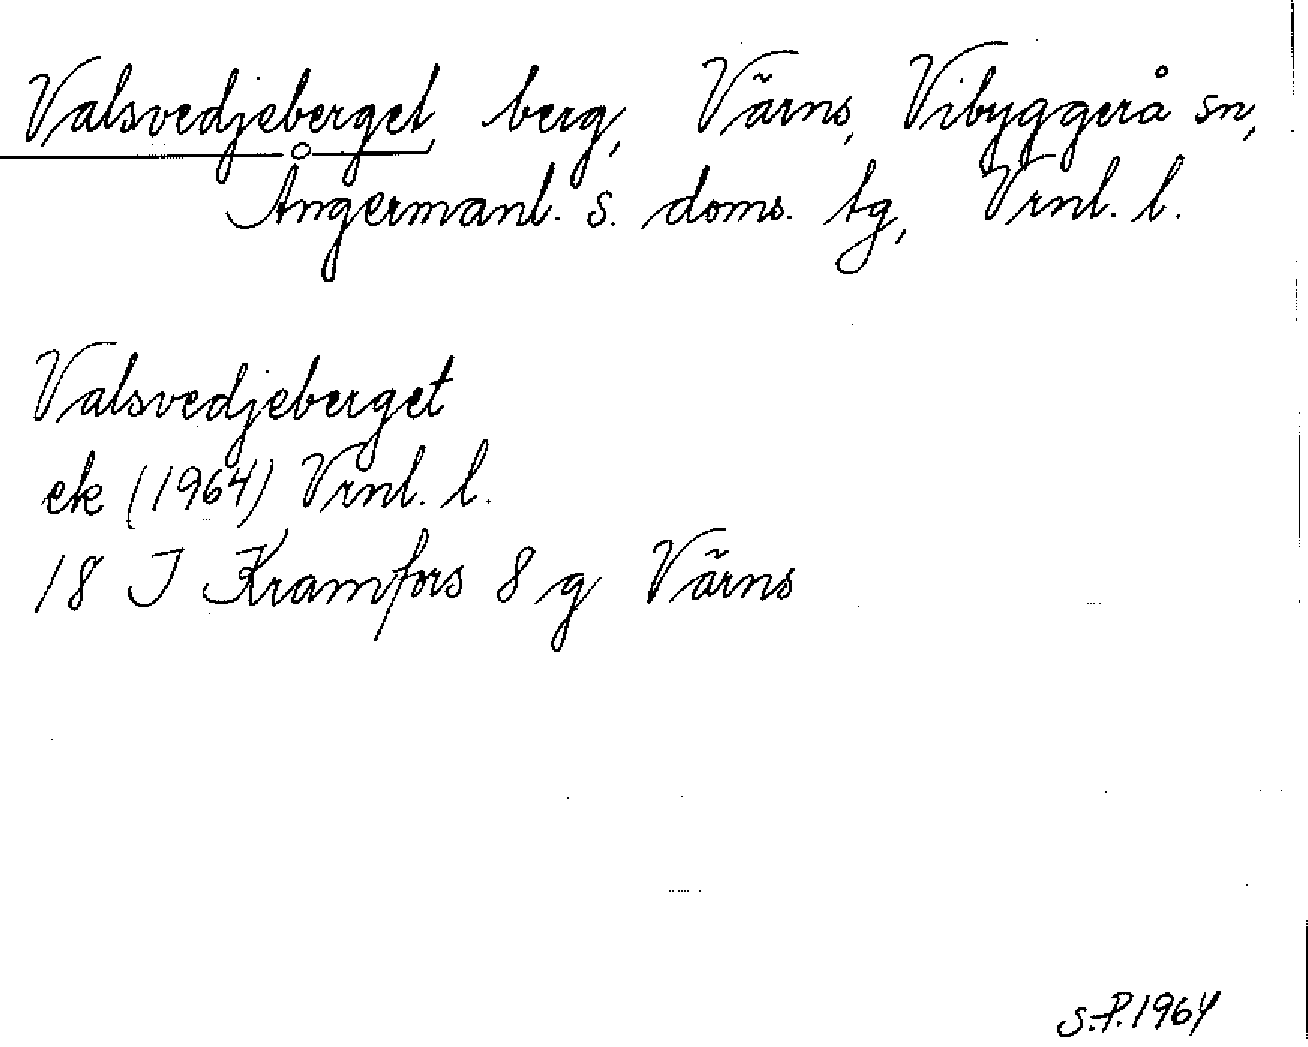 Valsvedjeberget, berg, Värns, Vibyggerå sn,
Ångermanl. s. doms. tg, Vrnl. l.
Valsvedjeberget
ek (1964) Vrnl. l.
18 I Kramfors 8 g Värns
S.P. 1964